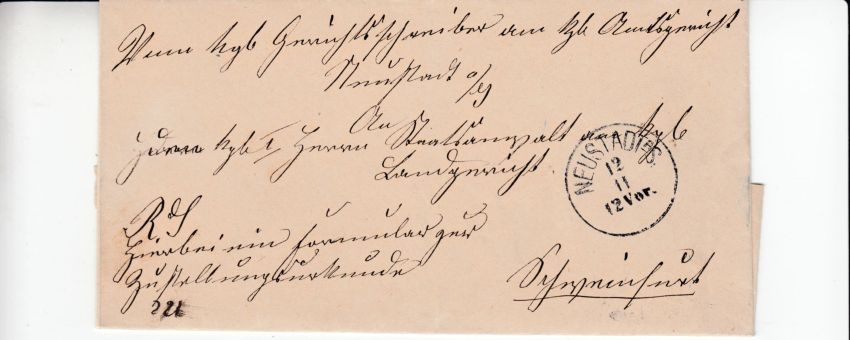 Vom kgb Gerichtsschreiber am kgb Amtsgericht
Neustadt a/S
An
den kgb I. Herrn Staatsanwalt am kgb
Landgericht
NEUSTADT a/S.
12
11
12 Vor.
R. S
Hierbei ein Formular zur
Zustellungsurkunde
Schweinfurt
221